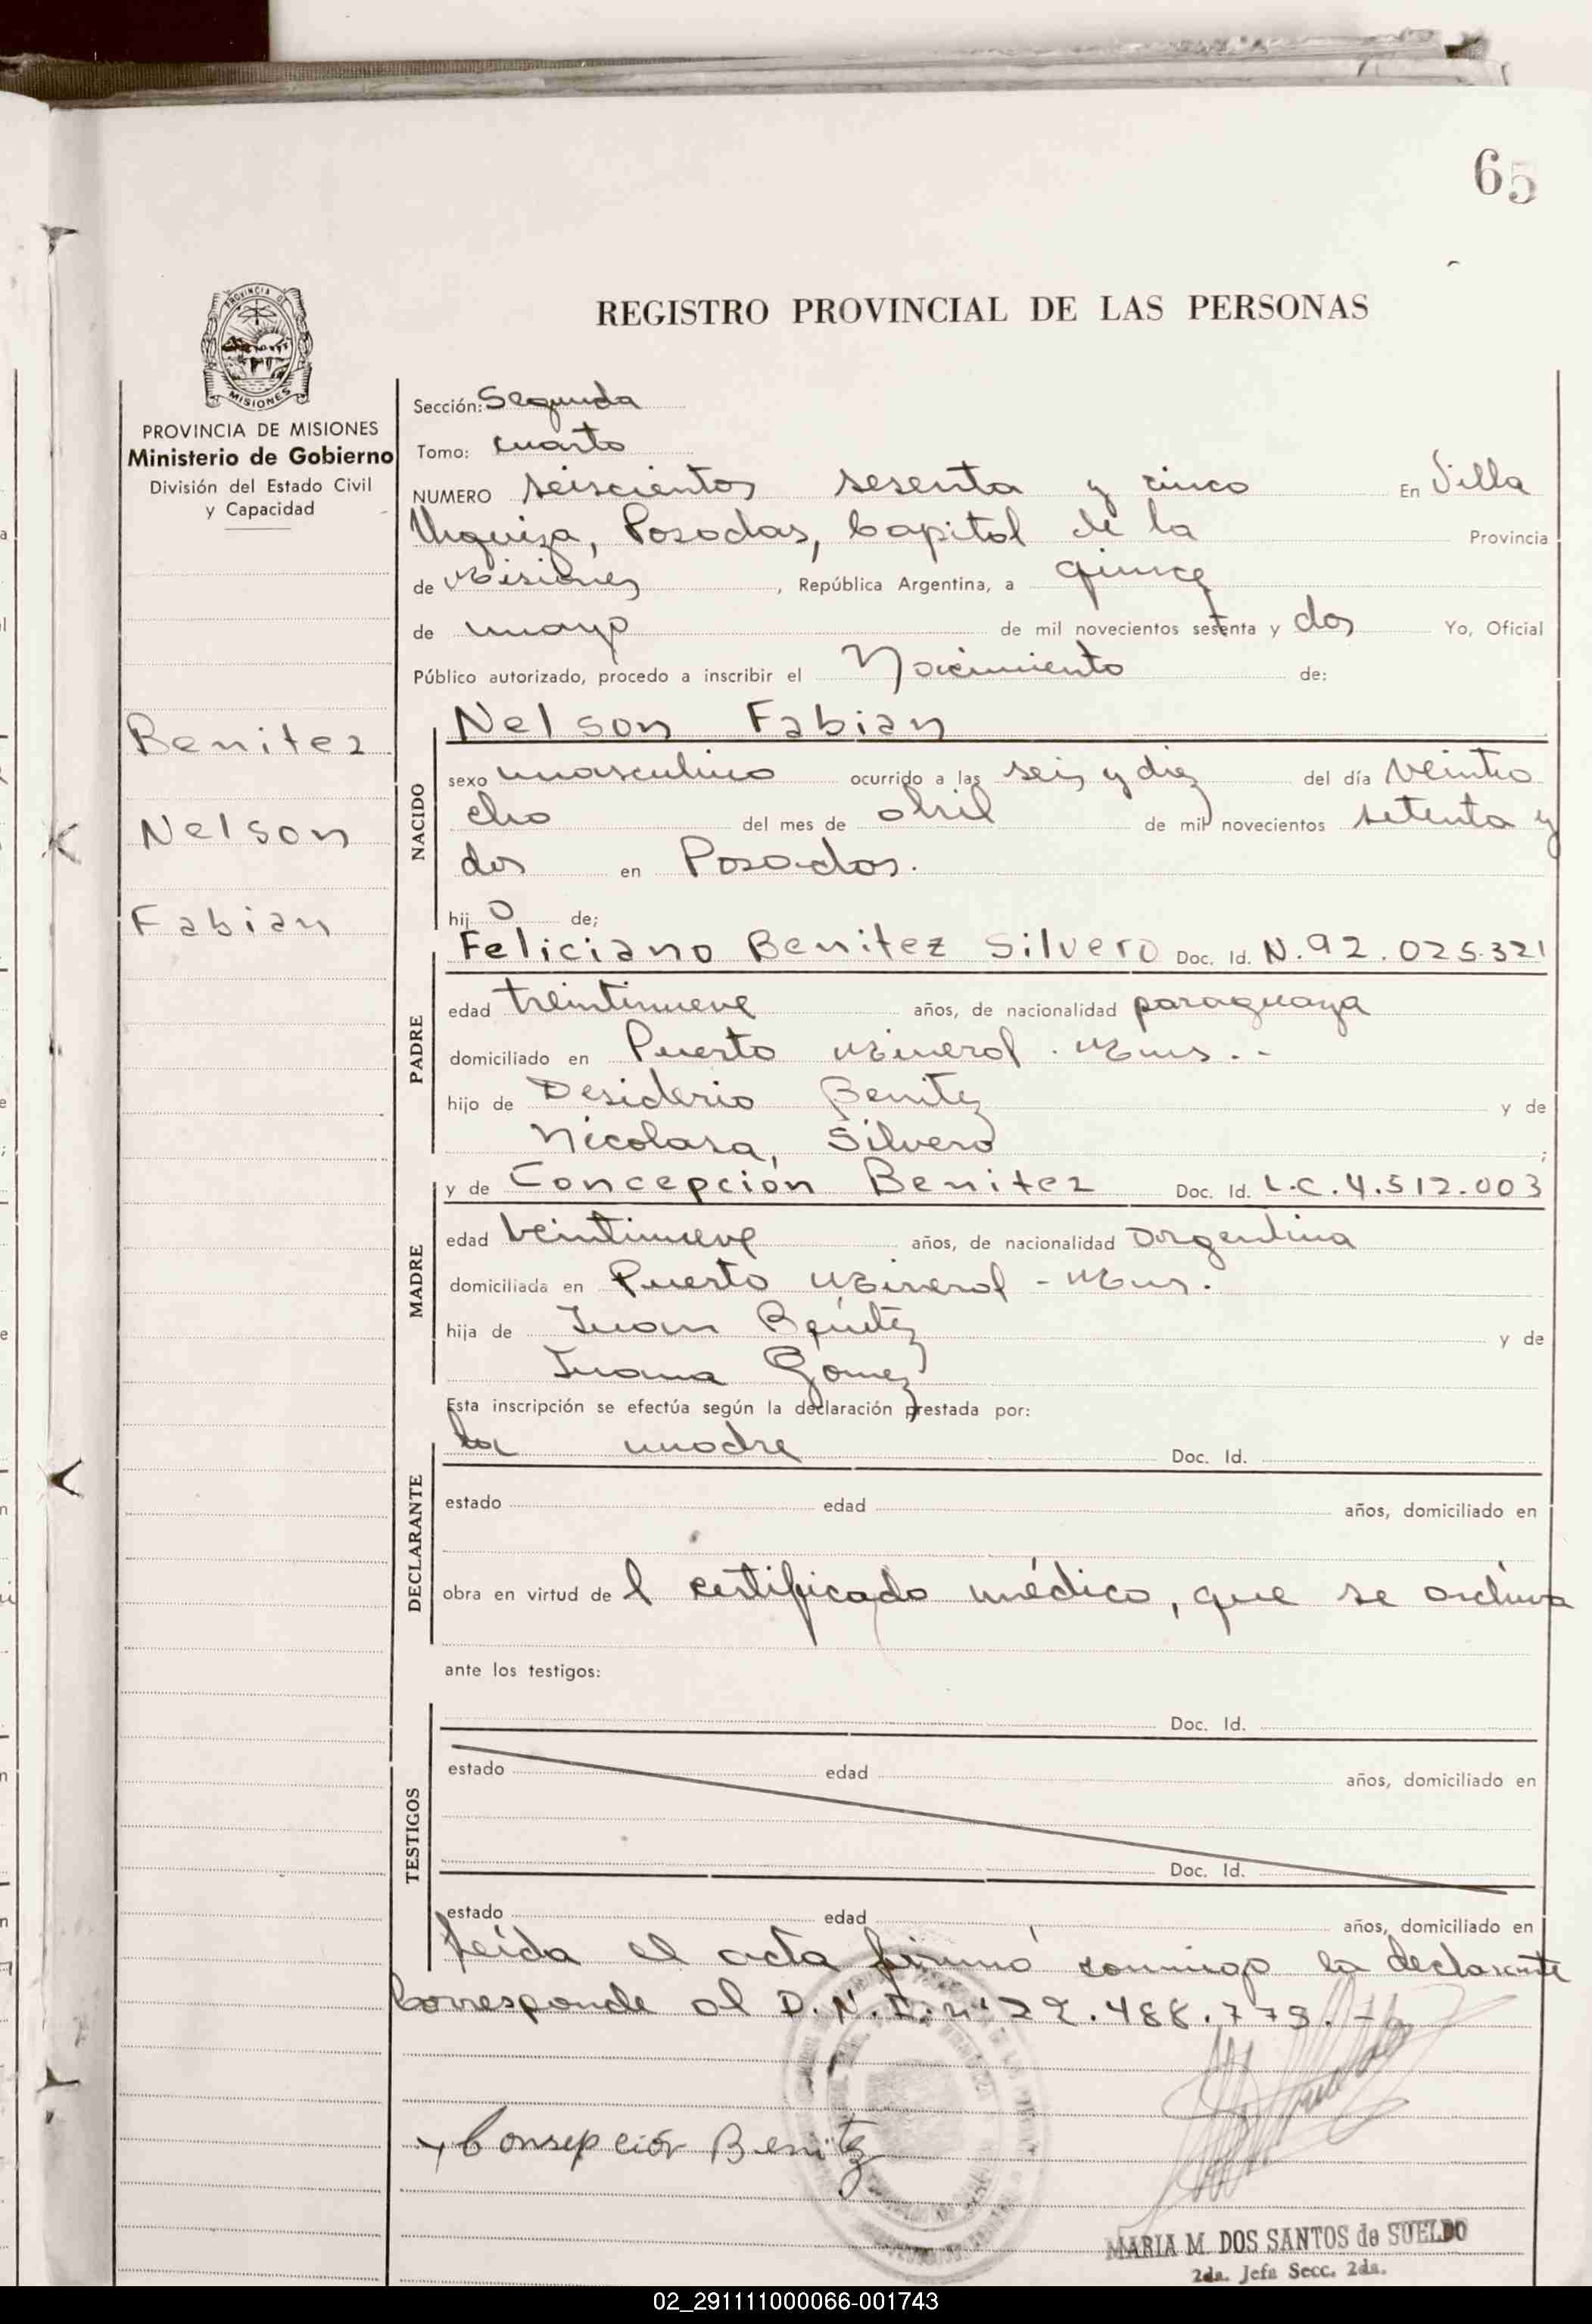 65
REGISTRO PROVINCIAL DE LAS PERSONAS
PROVINCIA DE MISIONES
Ministerio de Gobierno
División del Estado Civil
y Capacidad
Sección: Segunda
Tomo: cuarto
NUMERO seiscientos sesenta y cinco En Villa
Urquiza, Posadas, Capital de la Provincia
de Misiones, República Argentina, a quince
de mayo de mil novecientos setenta y dos Yo, Oficial
Público autorizado, procedo a inscribir el Nacimiento de:
Benitez
Nelson
Fabian
NACIDO
Nelson Fabian
sexo masculino ocurrido a las seis y diez del día veintio
cho del mes de abril de mil novecientos setenta y
dos en Posadas.
hijo de;
PADRE
Feliciano Benitez Silvero Doc. Id. N.92.025.321
edad treintinueve años, de nacionalidad paraguaya
domiciliado en Puerto Mineral - Mnes.-
hijo de Desiderio Benitez y de
Nicolasa, Silvero ;
MADRE
y de Concepción Benitez Doc. Id. L.C.4.512.003
edad veintinueve años, de nacionalidad argentina
domiciliada en Puerto Mineral - Mnes.
hija de Juan Benitez y de
Juana Gómez
Esta inscripción se efectúa según la declaración prestada por:
DECLARANTE
la madre Doc. Id.
estado edad años, domiciliado en
obra en virtud de l certificado médico, que se archiva
ante los testigos:
TESTIGOS
Doc. Id.
estado edad años, domiciliado en
Doc. Id.
estado edad años, domiciliado en
Leída el acta firmó conmigo la declarante
Corresponde al D.N.I. nº 22.488.779.-
Consepción Benitez
MARIA M. DOS SANTOS de SUELDO
2da. Jefa Secc. 2da.
02_291111000066-001743